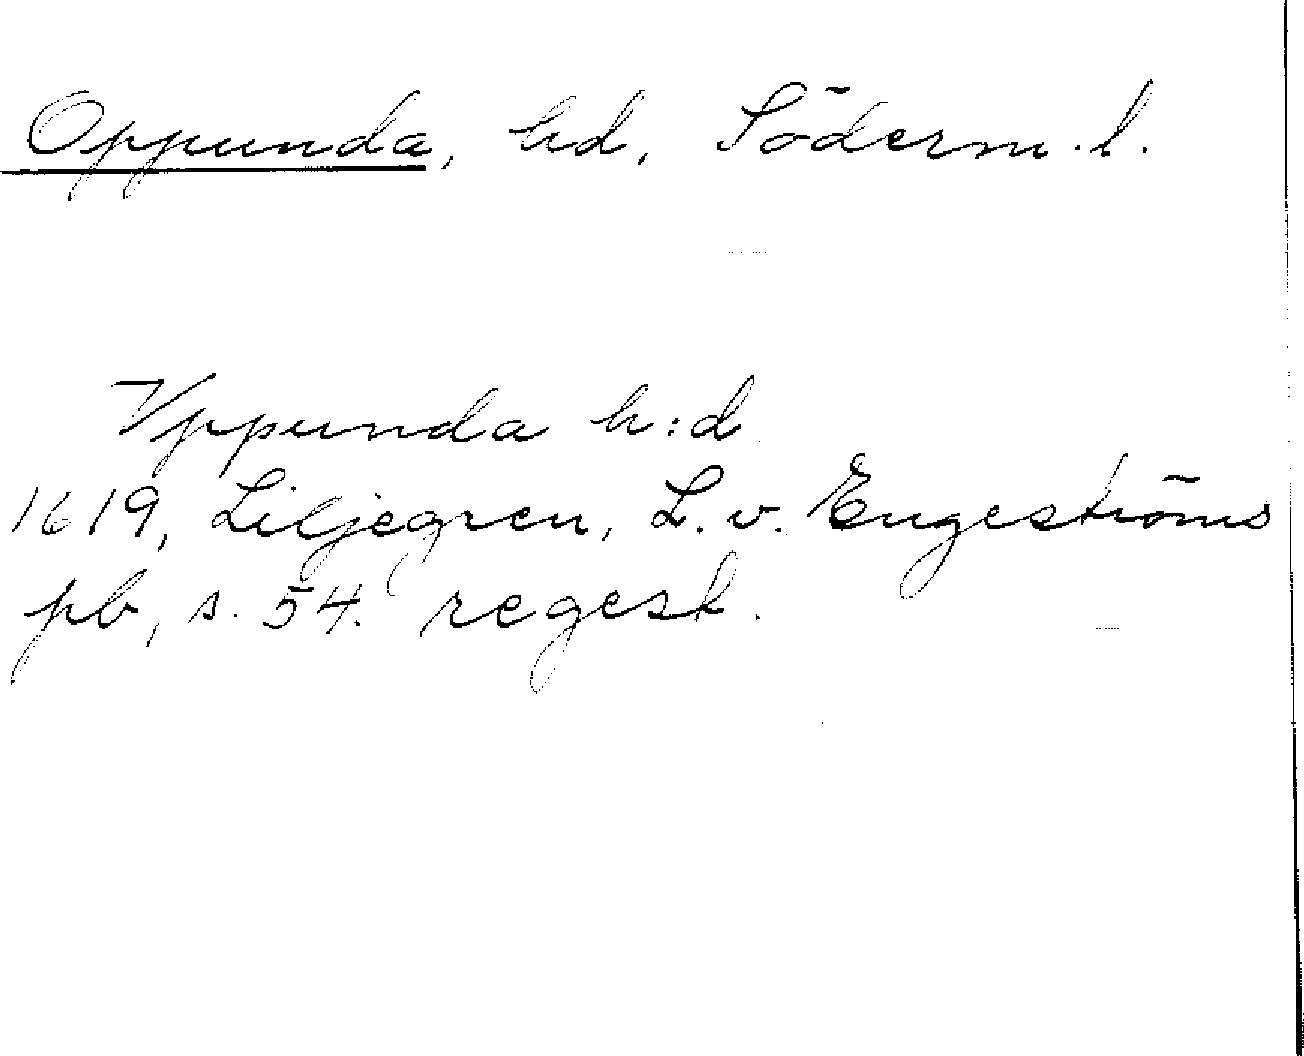 Oppunda, hd, Söderm. l.
Vppunda h:d
1619, Liljegren, L. v. Engeströms
pb, s. 54. regest.